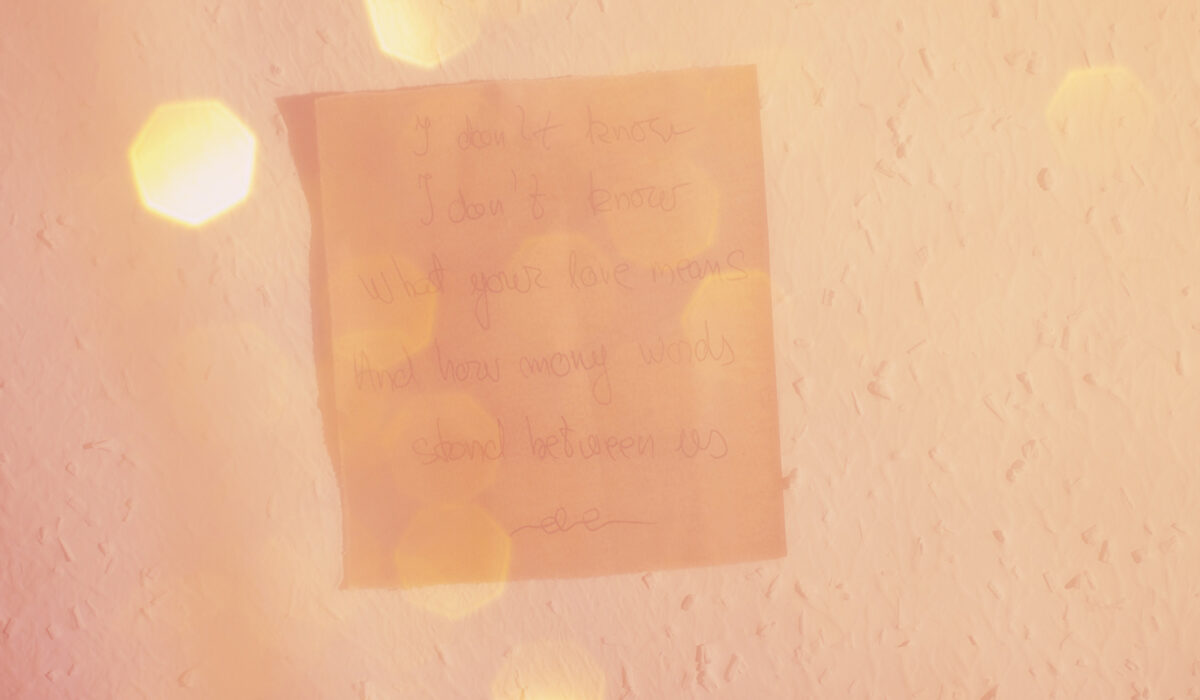 I don't know
I don't know
What your love means
And how many words
stand between us